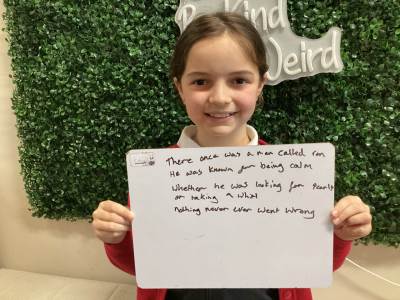 Be Kind
Weird
There once was a man called ron
He was known for being calm
Whether he was looking for
or taking a
nothing never ever went wrong